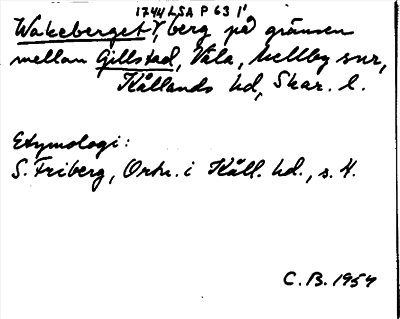 1744 LSA P 63 1'
Wakeberget, berg på gränsen
mellan Gillstad, Väla, Mellby snr,
Kållands hd, Skar. l.
Etymologi:
S. Friberg, Ortn. i Kåll. hd., s. 4.
C.B. 1954